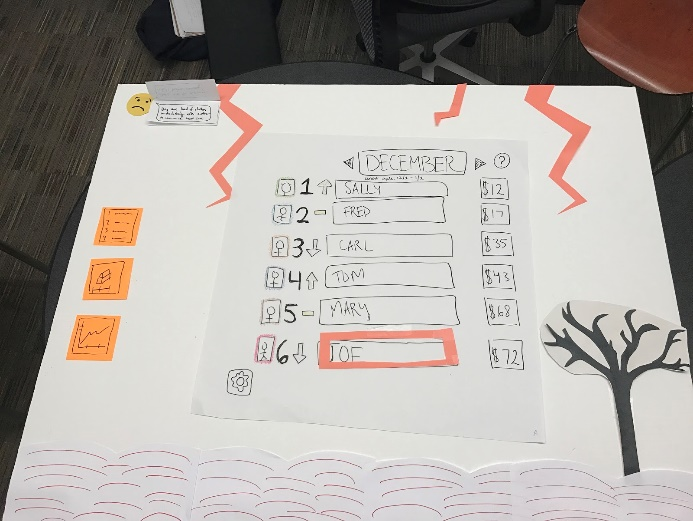 DECEMBER ?
1 SALLY $12
2 - FRED $17
3 CARL $35
4 TOM $43
5 - MARY $68
6 JOE $72